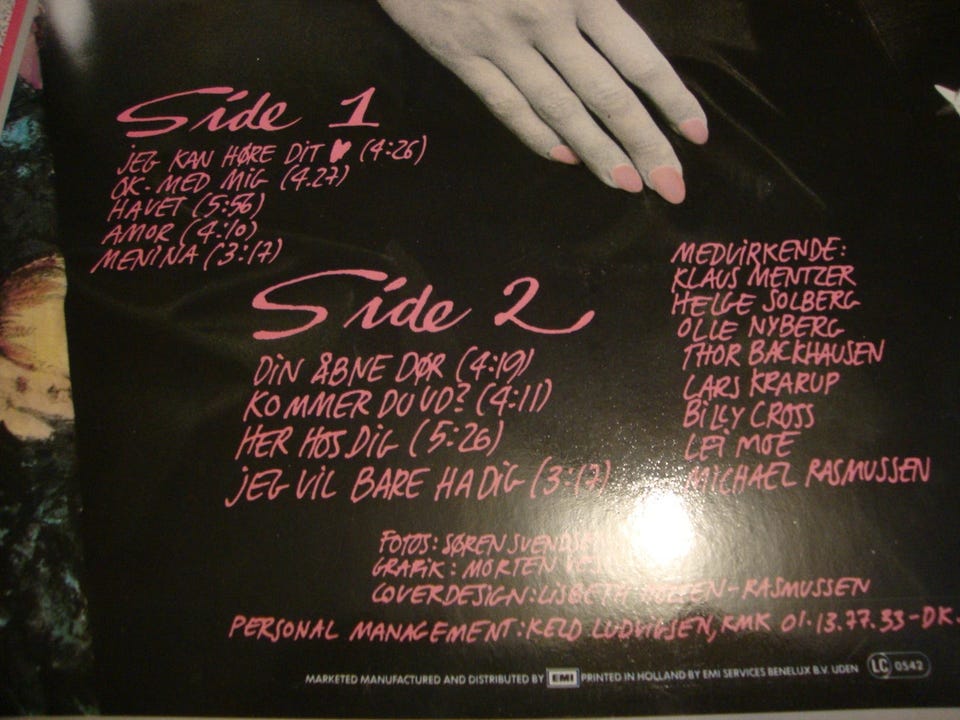 Side 1
JEG KAN HØRE DIT ♥ (4:26)
OK. MED MIG (4.27)
HAVET (5:56)
AMOR (4:10)
MENINA (3:17)
Side 2
DIN ÅBNE DØR (4:19)
KOMMER DU UD? (4:11)
HER HOS DIG (5:26)
JEG VIL BARE HA DIG (3:17)
MEDVIRKENDE:
KLAUS MENTZER
HELGE SOLBERG
OLLE NYBERG
THOR BACKHAUSEN
LARS KRARUP
BILLY CROSS
LEI MOE
MICHAEL RASMUSSEN
FOTOS: SØREN
GRAFIK: MORTEN
COVERDESIGN: LISBETH -RASMUSSEN
PERSONAL MANAGEMENT: KELD LUDVIGSEN, KMK 01·13.77.33-DK.
MARKETED MANUFACTURED AND DISTRIBUTED BY EMI PRINTED IN HOLLAND BY EMI SERVICES BENELUX B.V. UDEN LC 0542